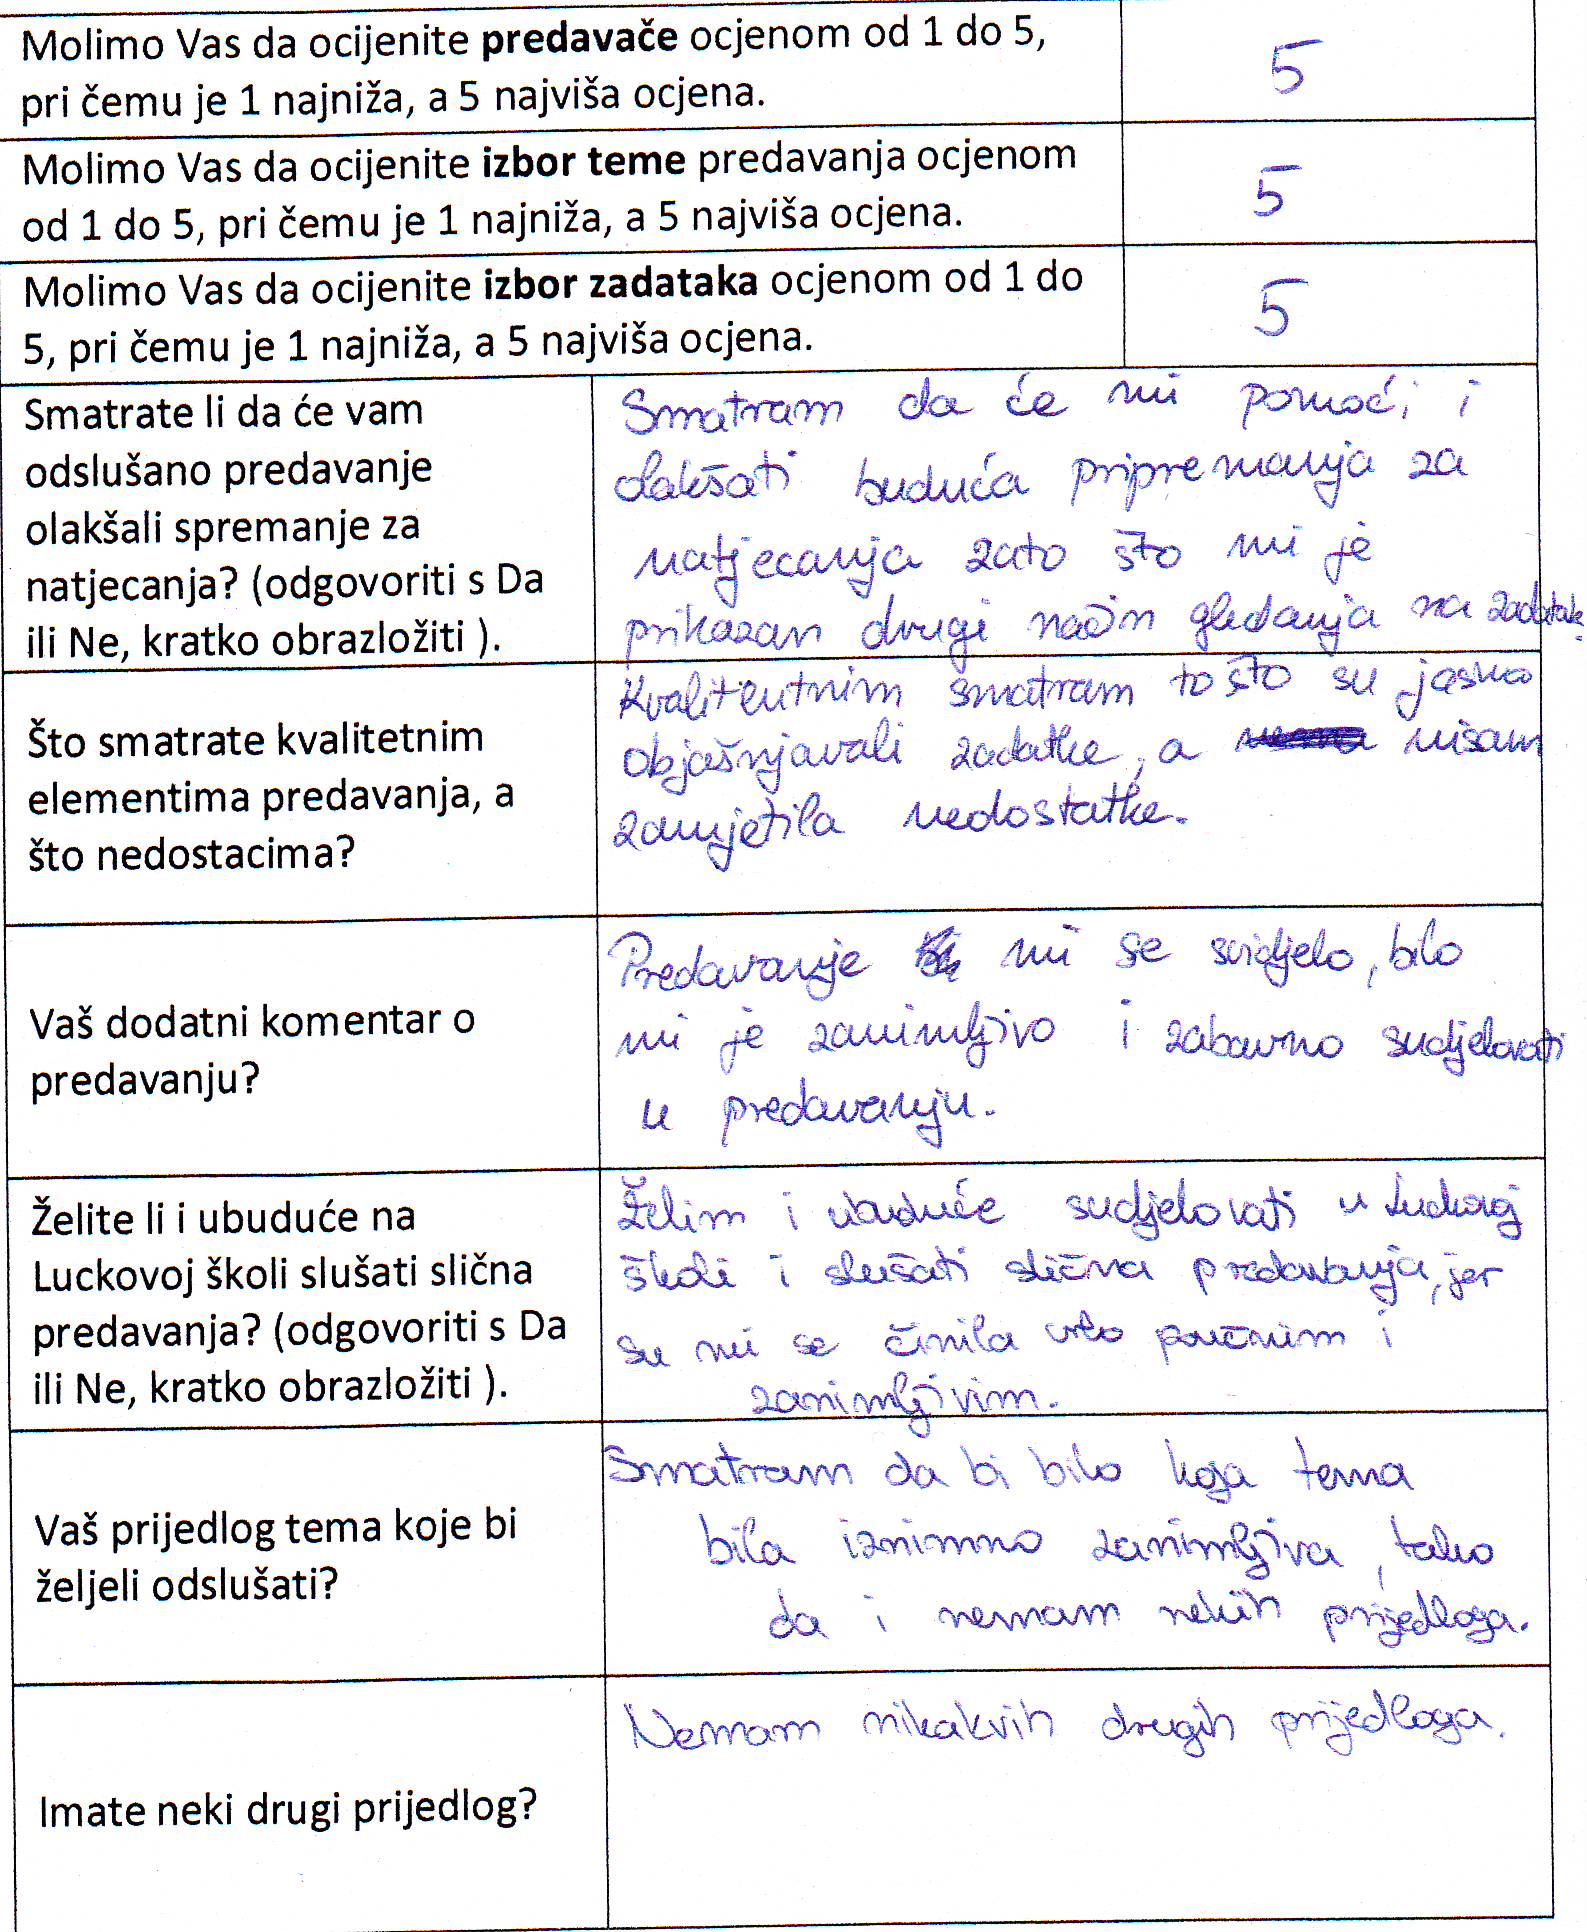 Molimo Vas da ocijenite predavače ocjenom od 1 do 5,
pri čemu je 1 najniža, a 5 najviša ocjena.
5
Molimo Vas da ocijenite izbor teme predavanja ocjenom
od 1 do 5, pri čemu je 1 najniža, a 5 najviša ocjena.
5
Molimo Vas da ocijenite izbor zadataka ocjenom od 1 do
5, pri čemu je 1 najniža, a 5 najviša ocjena.
5
Smatrate li da će vam
odslušano predavanje
olakšali spremanje za
natjecanja? (odgovoriti s Da
ili Ne, kratko obrazložiti ).
Smatram da će mi pomoći i
olakšati buduća pripremanja za
natjecanja zato što mi je
prikazan drugi način gledanja na zadatak.
Što smatrate kvalitetnim
elementima predavanja, a
što nedostacima?
Kvalitetnim smatram to što su jasno
objašnjavali zadatke, a nisam
zamjetila nedostatke.
Vaš dodatni komentar o
predavanju?
Predavanje mi se svidjelo, bilo
mi je zanimljivo i zabavno sudjelovati
u predavanju.
Želite li i ubuduće na
Luckovoj školi slušati slična
predavanja? (odgovoriti s Da
ili Ne, kratko obrazložiti ).
Želim i ubuduće sudjelovati u Luckovoj
školi i slušati slična predavanja, jer
su mi se činila vrlo poučnim i
zanimljivim.
Vaš prijedlog tema koje bi
željeli odslušati?
Smatram da bi bilo koja tema
bila iznimno zanimljiva, tako
da i nemam nekih prijedloga.
Imate neki drugi prijedlog?
Nemam nikakvih drugih prijedloga.